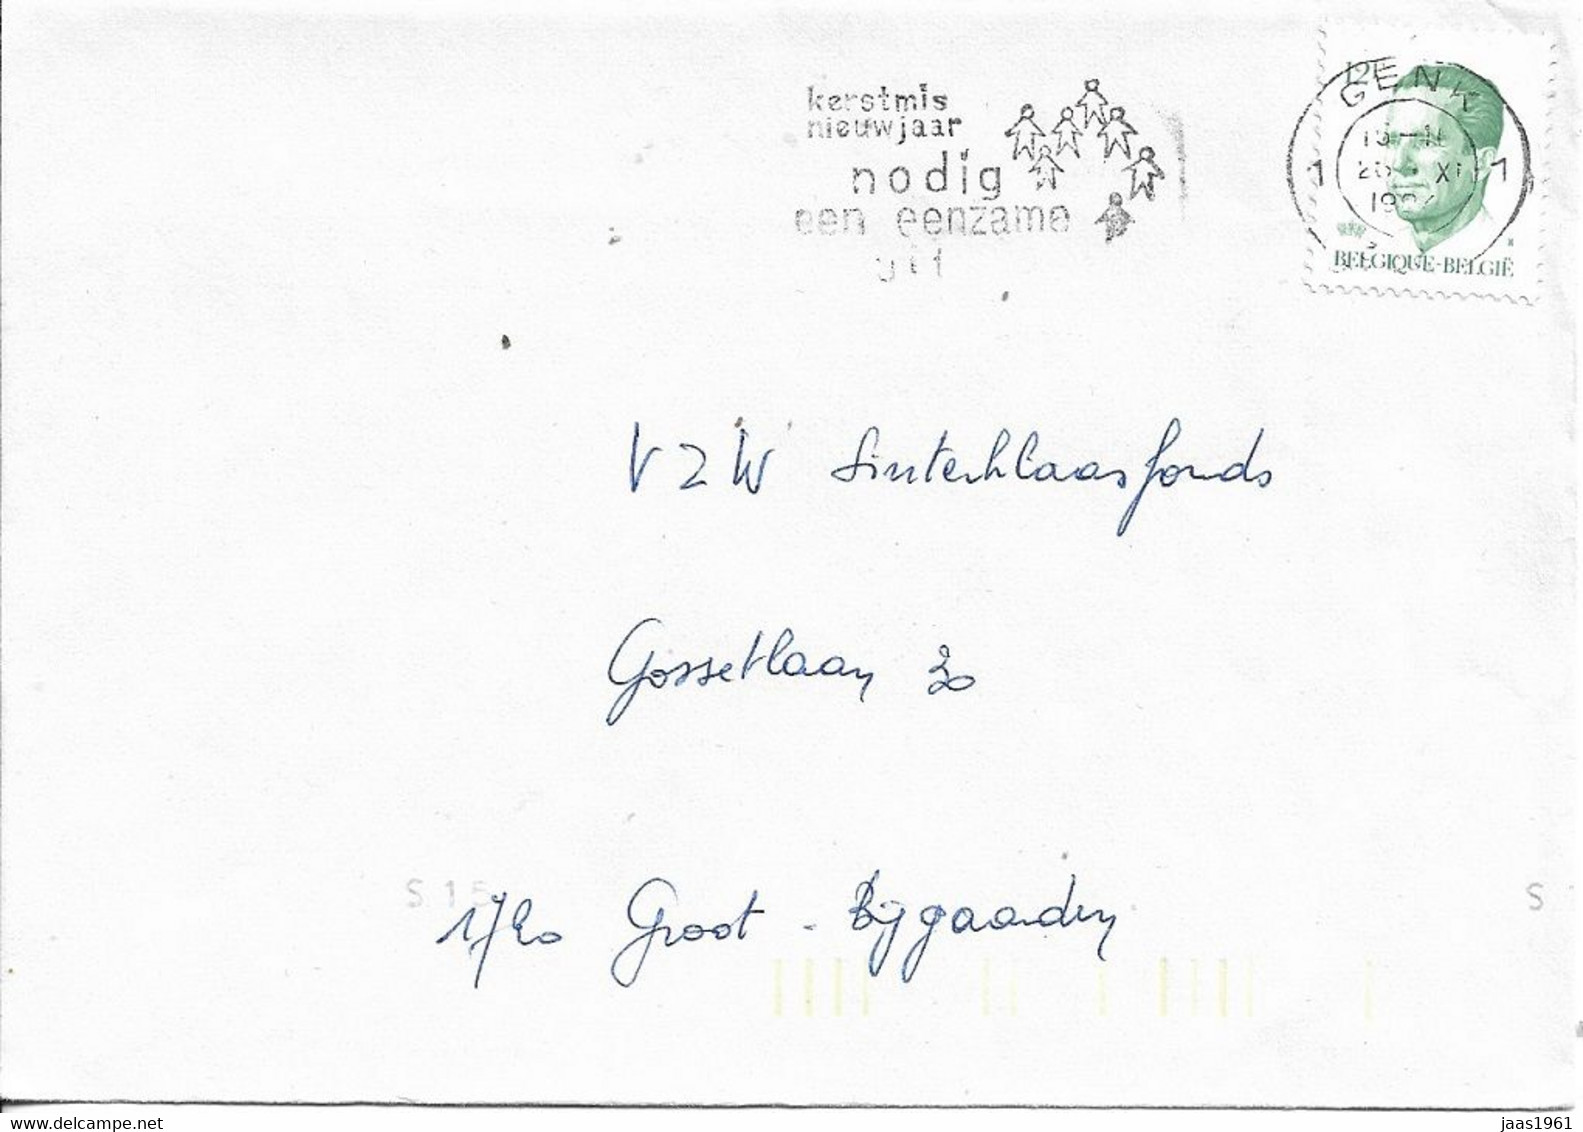 kerstmis
nieuwjaar
nodig
een eenzame
uit
12F
GENK
1 XI 1
BELGIQUE-BELGIË
VZW Sinterklaasfonds
Gossetlaan 30
S 15
1720 Groot-Bijgaarden
S
delcampe.net
jaas1961